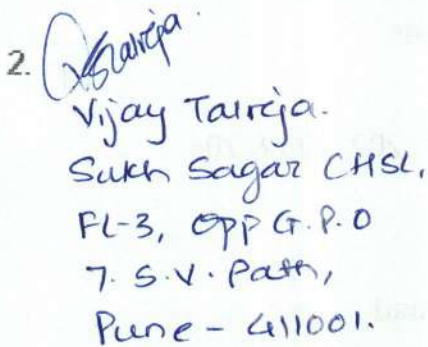 2.
Vijay Talreja.
Sukh Sagar CHSL,
FL-3, Opp G.P.O
7. S.V. Path,
Pune - 411001.